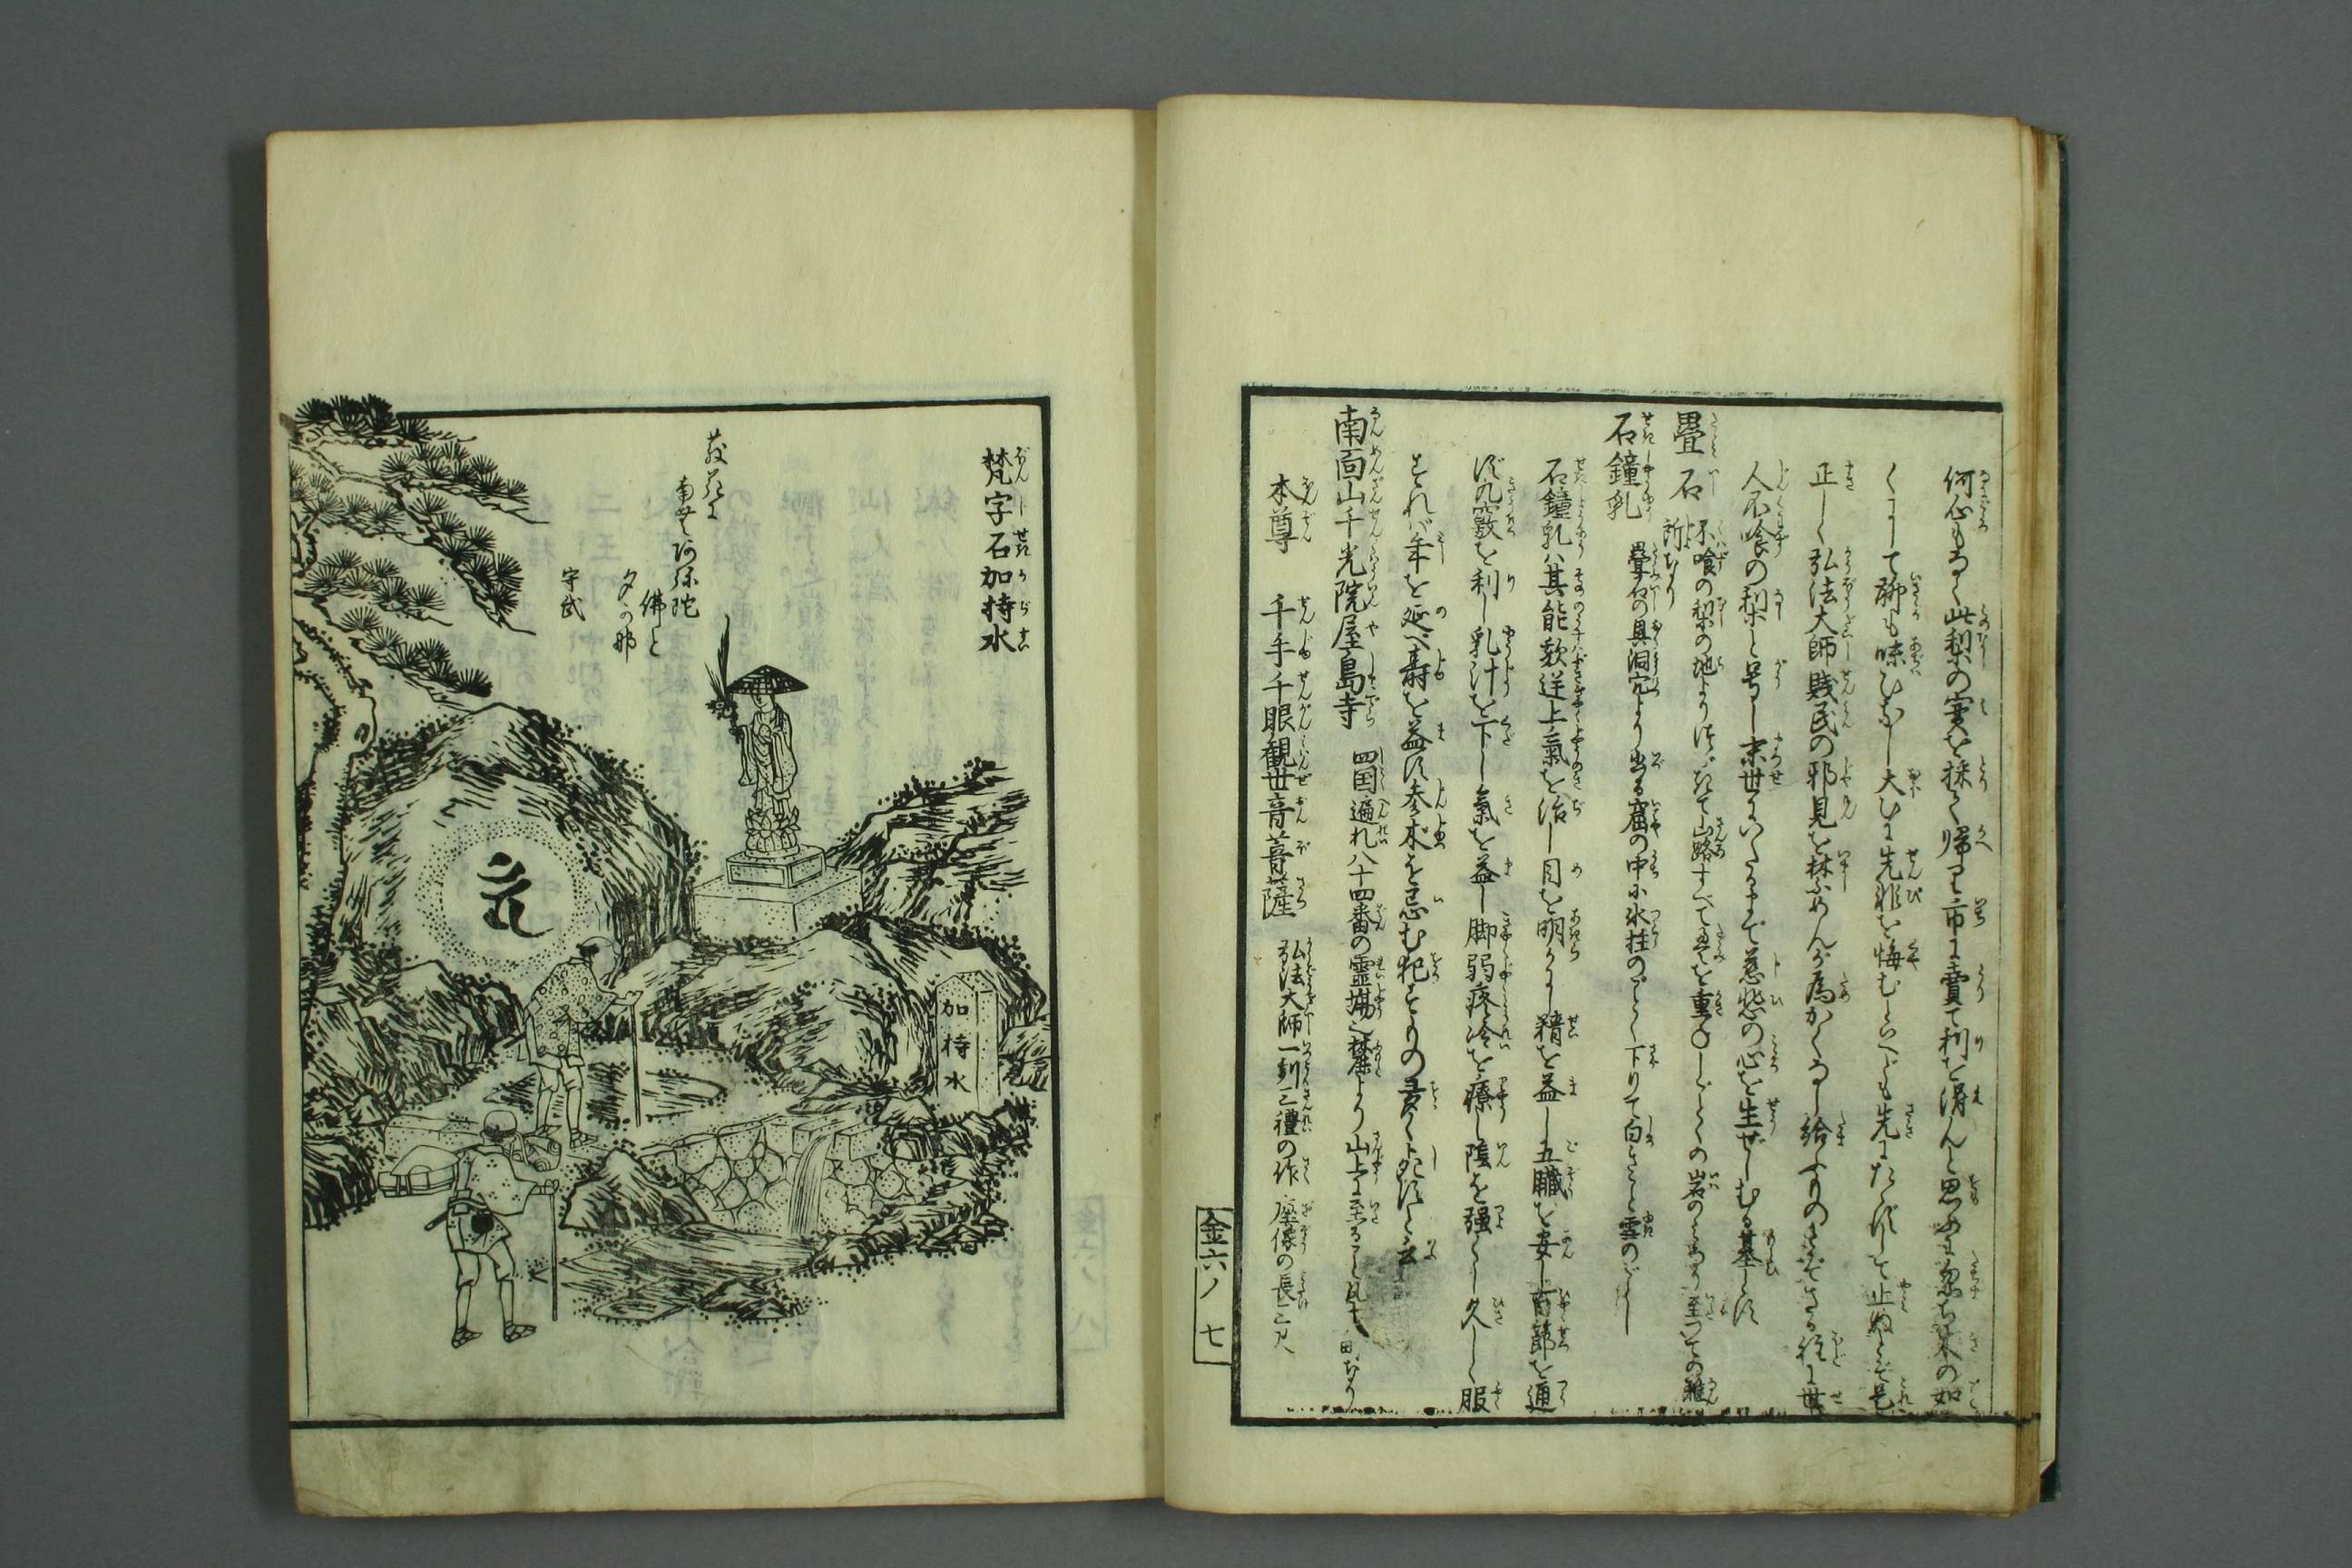 何心もなく此梨の実を採て帰り市に賣て利を得んと思ふに忽ち木の如
くにして聊も味ひなし大ひに先非を悔むといへども先にたゝずして止ぬとぞ是
正しく弘法大師賤民の邪見を禁しめんが為かくなし給ふものさぞさる程に世
人不喰の梨と号し末世にいたるまで慈悲の心を生ぜしむる基とす
畳石
不喰の梨の地よりつゞきて山路すべて畳を重ねしごとくの岩のみなり至つての難
所なり
石鐘乳
畳石の奥洞穴より出る窟の中に氷柱のごとく下りて白きこと雪のごとし
石鐘乳ハ其能欬逆上氣を治し目を明らかにし精を益し五臓を安し百節を通
ず九竅を利し乳汁を下し氣を益し脚弱疼冷を療し陰を强くし久しく服
すれバ年を延べ壽を益す参木を忌む犯すもの多く死すと云
南面山千光院屋島寺
四国遍礼八十四番の霊場也麓より山上に至ること凡十八町なり
本尊 千手千眼観世音菩薩
弘法大師一刻三禮の作 座像の長三尺
金六ノ 七
梵字石加持水
散花に
南無阿弥陀
佛と
夕へ哉
守武
加持水